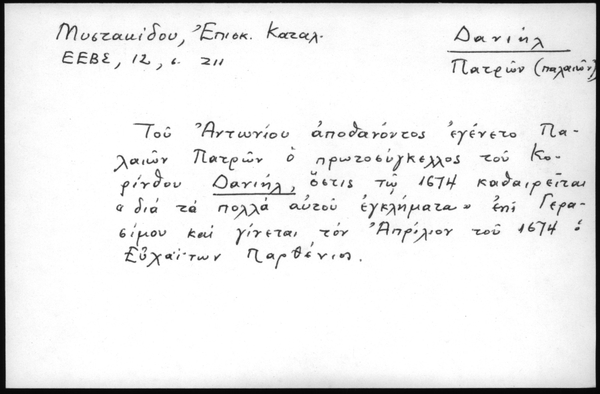 Μυστακίδου, Ἐπισκ. Καταλ.
ΕΕΒΣ, 12, σ. 211
Δανιήλ
Πατρῶν (παλαιῶν)
Τοῦ Ἀντωνίου ἀποθανόντος ἐγένετο Πα-
λαιῶν Πατρῶν ὁ πρωτοσύγκελλος τοῦ Κο-
ρίνθου Δανιήλ, ὅστις τῷ 1674 καθαιρεῖται
«διά τά πολλά αὐτοῦ ἐγκλήματα» ἐπί Γερα-
σίμου καί γίνεται τόν Ἀπρίλιον τοῦ 1674 ὁ
Εὐχαΐτων Παρθένιος.